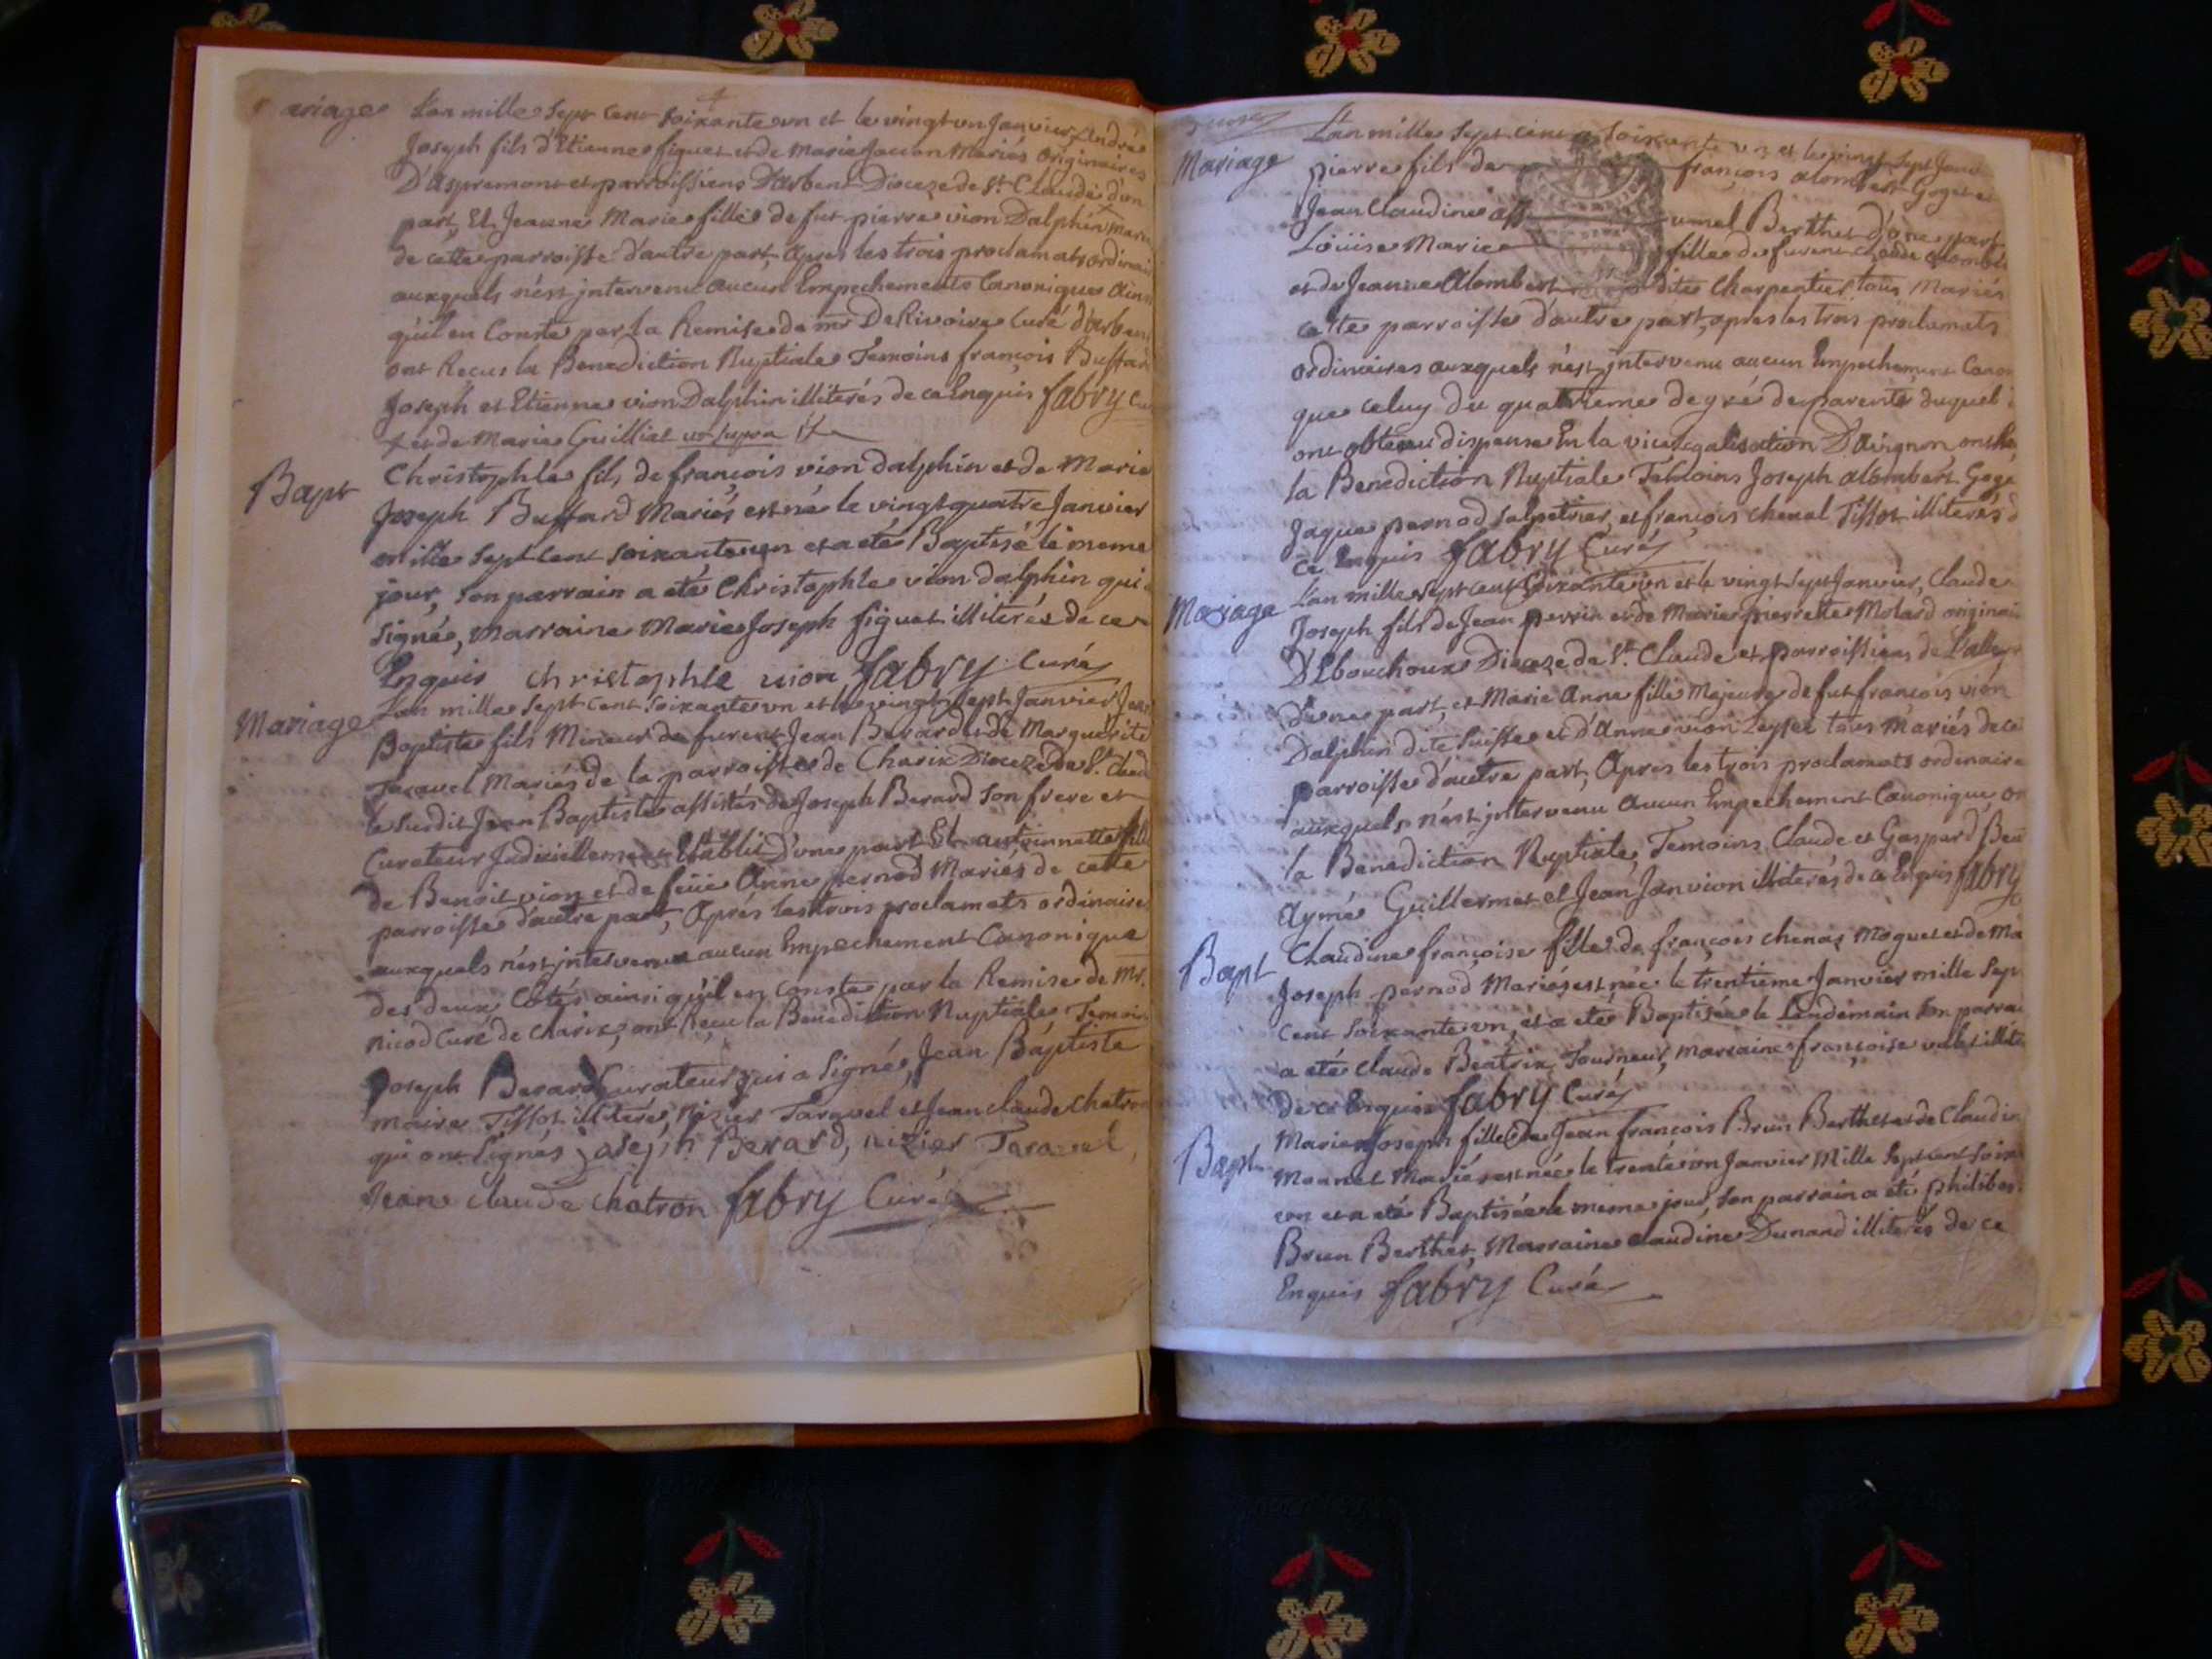 ariage L'an mille Sept Cent Soixante un et le vingt un Janvier André
Joseph fils d'Etienne figuet et de Marie Jaccon Mariés originaires
D'aspremont et parroissiens D'arbent Dioceze de St Claude d'un
part, Et Jeanne Marie fille de fut pierre vion Dalphin
de cette parroisse d'autre part, Apres les trois proclamats ordinair
auxquels n'est jntervenu aucun Empechements Canonique Ains
qu'il en Conste par la Remise de mr De Rivoire Curé d'arbent
ont Recus la Benediction Nuptiale Temoins françois Buffard
Joseph et Etienne vion Dalphin illiterés de ce Enquis fabry Cu
+ et de Marie Guilliat ut supra
Bapt Christophle fils de françois vion dalphin et de Marie
Joseph Buffard Mariés est né le vingt quatre Janvier
mille Sept Cent Soixante un et a eté Baptisé le meme
jour, Son parrain a eté Christophle vion dalphin qui a
Signé, marraine Marie Joseph figuet illiterés de ce
Enquis christophle vion fabry Curé
Mariage L'an mille Sept Cent Soixante un et le vingt Sept Janvier Jean
Baptiste fils Mineur de furent Jean Berard et de Marguérite
Taravel Mariés de la parroisse de Charix Dioceze de St Claud
le Susdit Jean Baptiste assistés de Joseph Berard Son frere et
Curateur Judiciellement Etabli D'une part Et antoinnette fille
de Benoit vion et de feüe Anne pernod Mariés de cette
parroisse d'autre part, Aprés les trois proclamats ordinaire
auxquels n'est jntervenu aucun Empechement Canonique
des deux Cotés ainsi qu'il en Conste par la Remise de Mr.
nicod Curé de Charix, ont Reçu la Benediction Nuptiale Temoin
Joseph Berard Curateur qui a Signé, Jean Baptiste
maire Tissot illiteré, Nizier Taravel et Jean claude Chatron
qui ont Signés joseph Berard, nizier Taravel,
Jean claude chatron fabry Curé
Mariage L'an mille Sept Cent Soixante un et le vingt Sept Janv
pierre fils de françois alombert Goget et
Jean Claudine Berthet d'une part
Loüise Marie fille de furent Claude alombert
et de Jeanne Alombert dite Charpentier tous Mariés
cette parroisse d'autre part, apres les trois proclamats
ordinaires auxquels n'est jntervenu aucun Empechement Canon
que celuy du quatrieme degré de parenté duquel i
ont obtenu dispense En la vicelegation D'avignon ont Re
la Benediction Nuptiale Temoins Joseph alombert Goge
Jaque pernod Salpetrier, et françois chenal Tissot illiterés d
ce Enquis fabry Curé
Mariage L'an mille Sept Cent Soixante un et le vingt Sept Janvier, Claude
Joseph fils de Jean perrin et de Marie pierrette Molard originair
D'Ebouchoux Dioceze de St Claude et parroissiens de
d'une part, et Marie Anne fille Majeure de fut françois vion
Dalphin dite Suisse et d'Anne vion Zeysel tous Mariés de ce
parroisse d'autre part, Apres les trois proclamats ordinaire
auxquels n'est jntervenu Aucun Empechement Canonique, on
la Benediction Nuptiale, Temoins Claude et Gaspard
Aymé Guillermet et Jean Jan vion illiterés de ce Enquis fabry
Bapt Claudine françoise fille de françois chenaz Moguet et de Ma
Joseph pernod Mariés est née le trentieme Janvier mille Sep
cent Soixante un, et a eté Baptisée le Lendemain Son parrai
a eté claude Beatrix Tourneur, marraine françoise vallet illité
de ce Enquis fabry Curé
Bapt Marie Joseph fille de Jean françois Brun Berthet et de Claudin
Monnet Mariés est née le trente un Janvier Mille Sept cent Soix
un et a eté Baptisée le meme jour, Son parrain a eté philiber
Brun Berthet, Marraine claudine Dunand illiterés de ce
Enquis fabry Curé